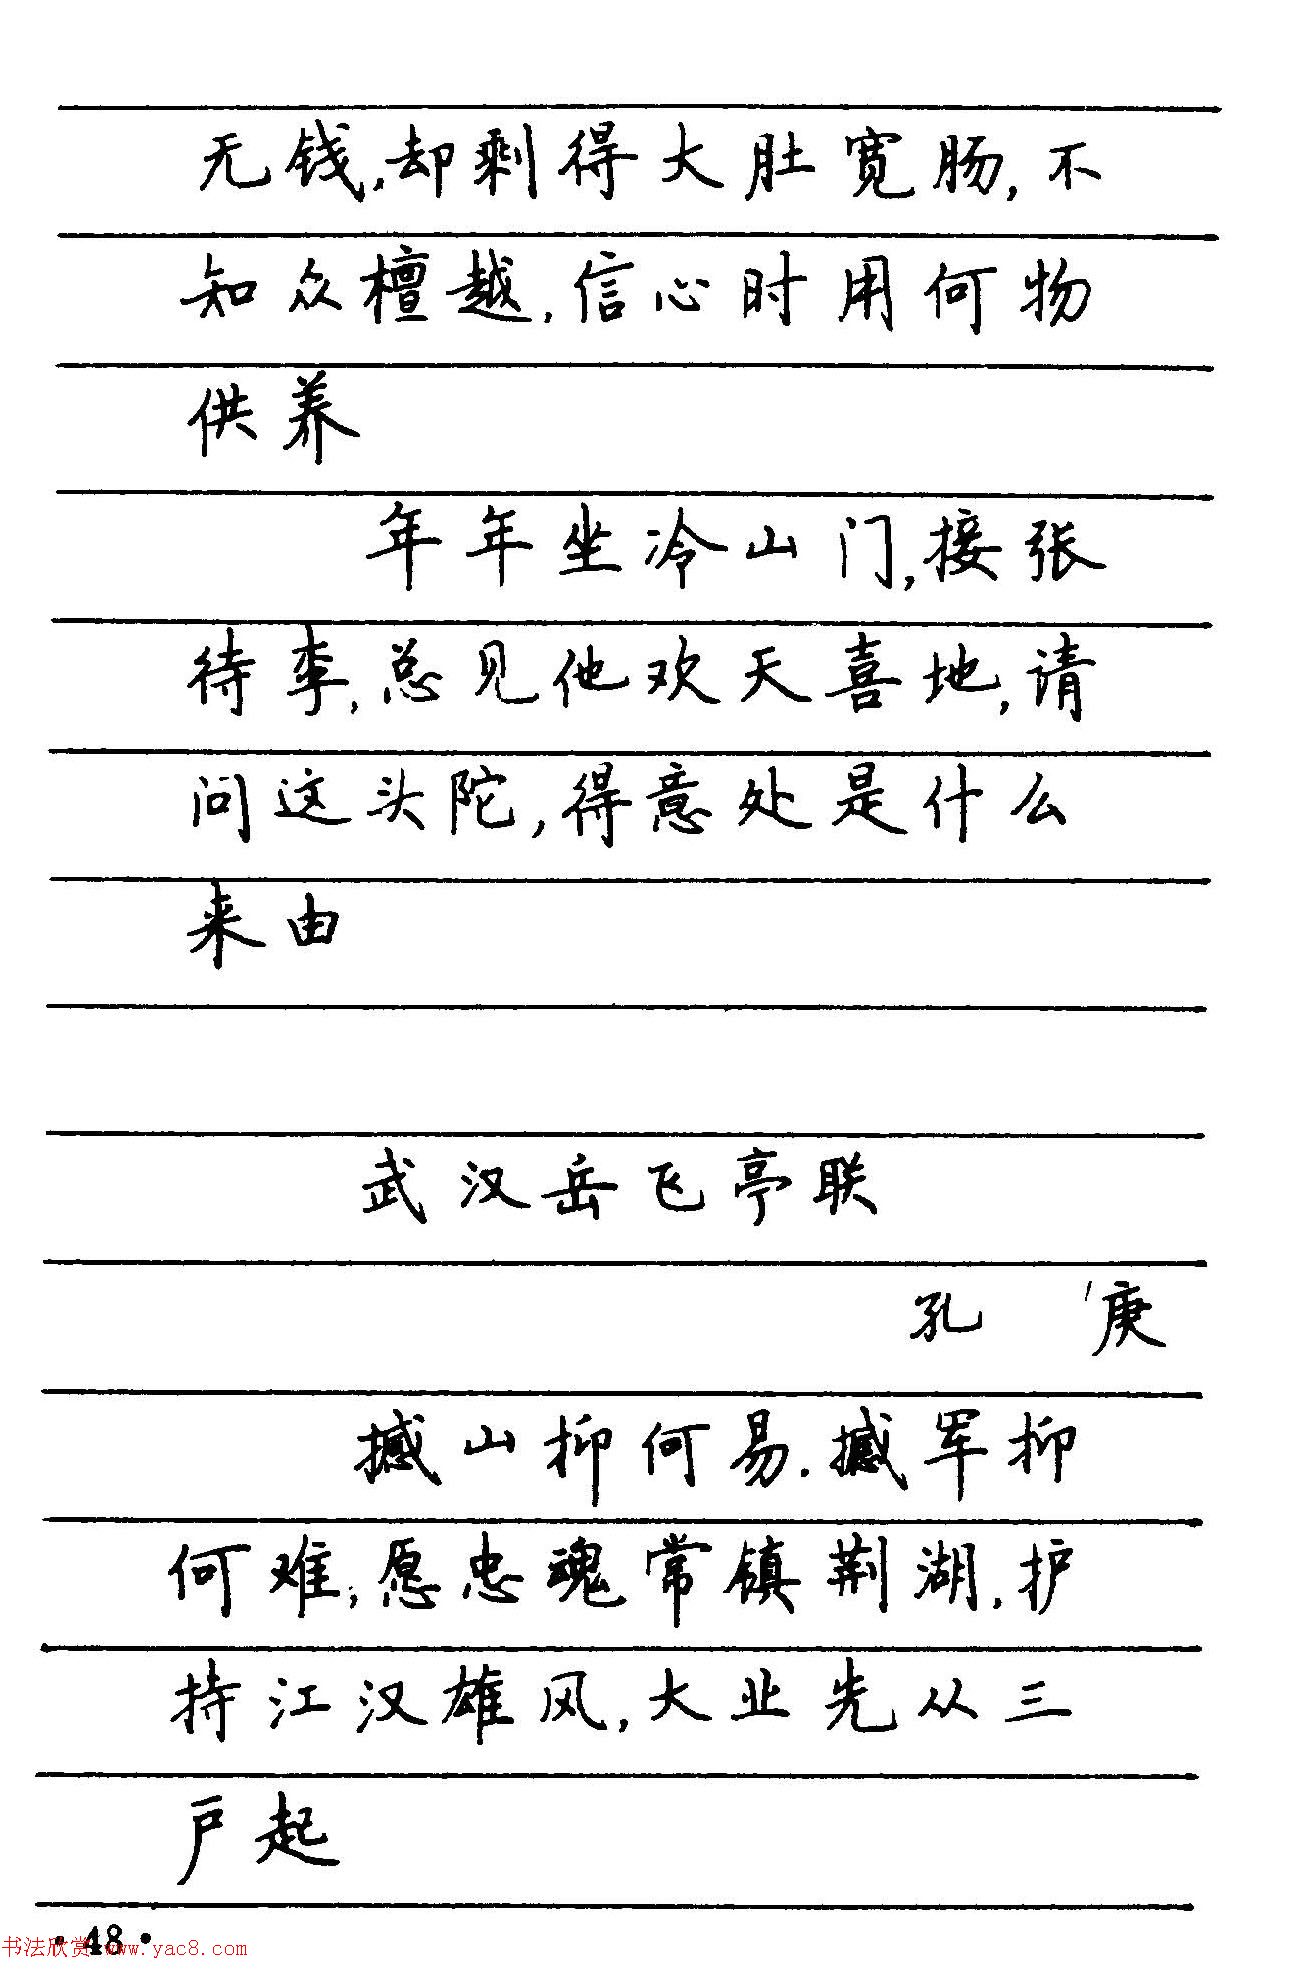 无钱,却剩得大肚宽肠,不
知众檀越,信心时用何物
供养
年年坐冷山门,接张
待李,总见他欢天喜地,请
问这头陀,得意处是什么
来由
武汉岳飞亭联
孔 庚
撼山抑何易.撼军抑
何难;愿忠魂常镇荆湖,护
持江汉雄风,大业先从三
户起
·48·
书法欣赏 www.yac8.com